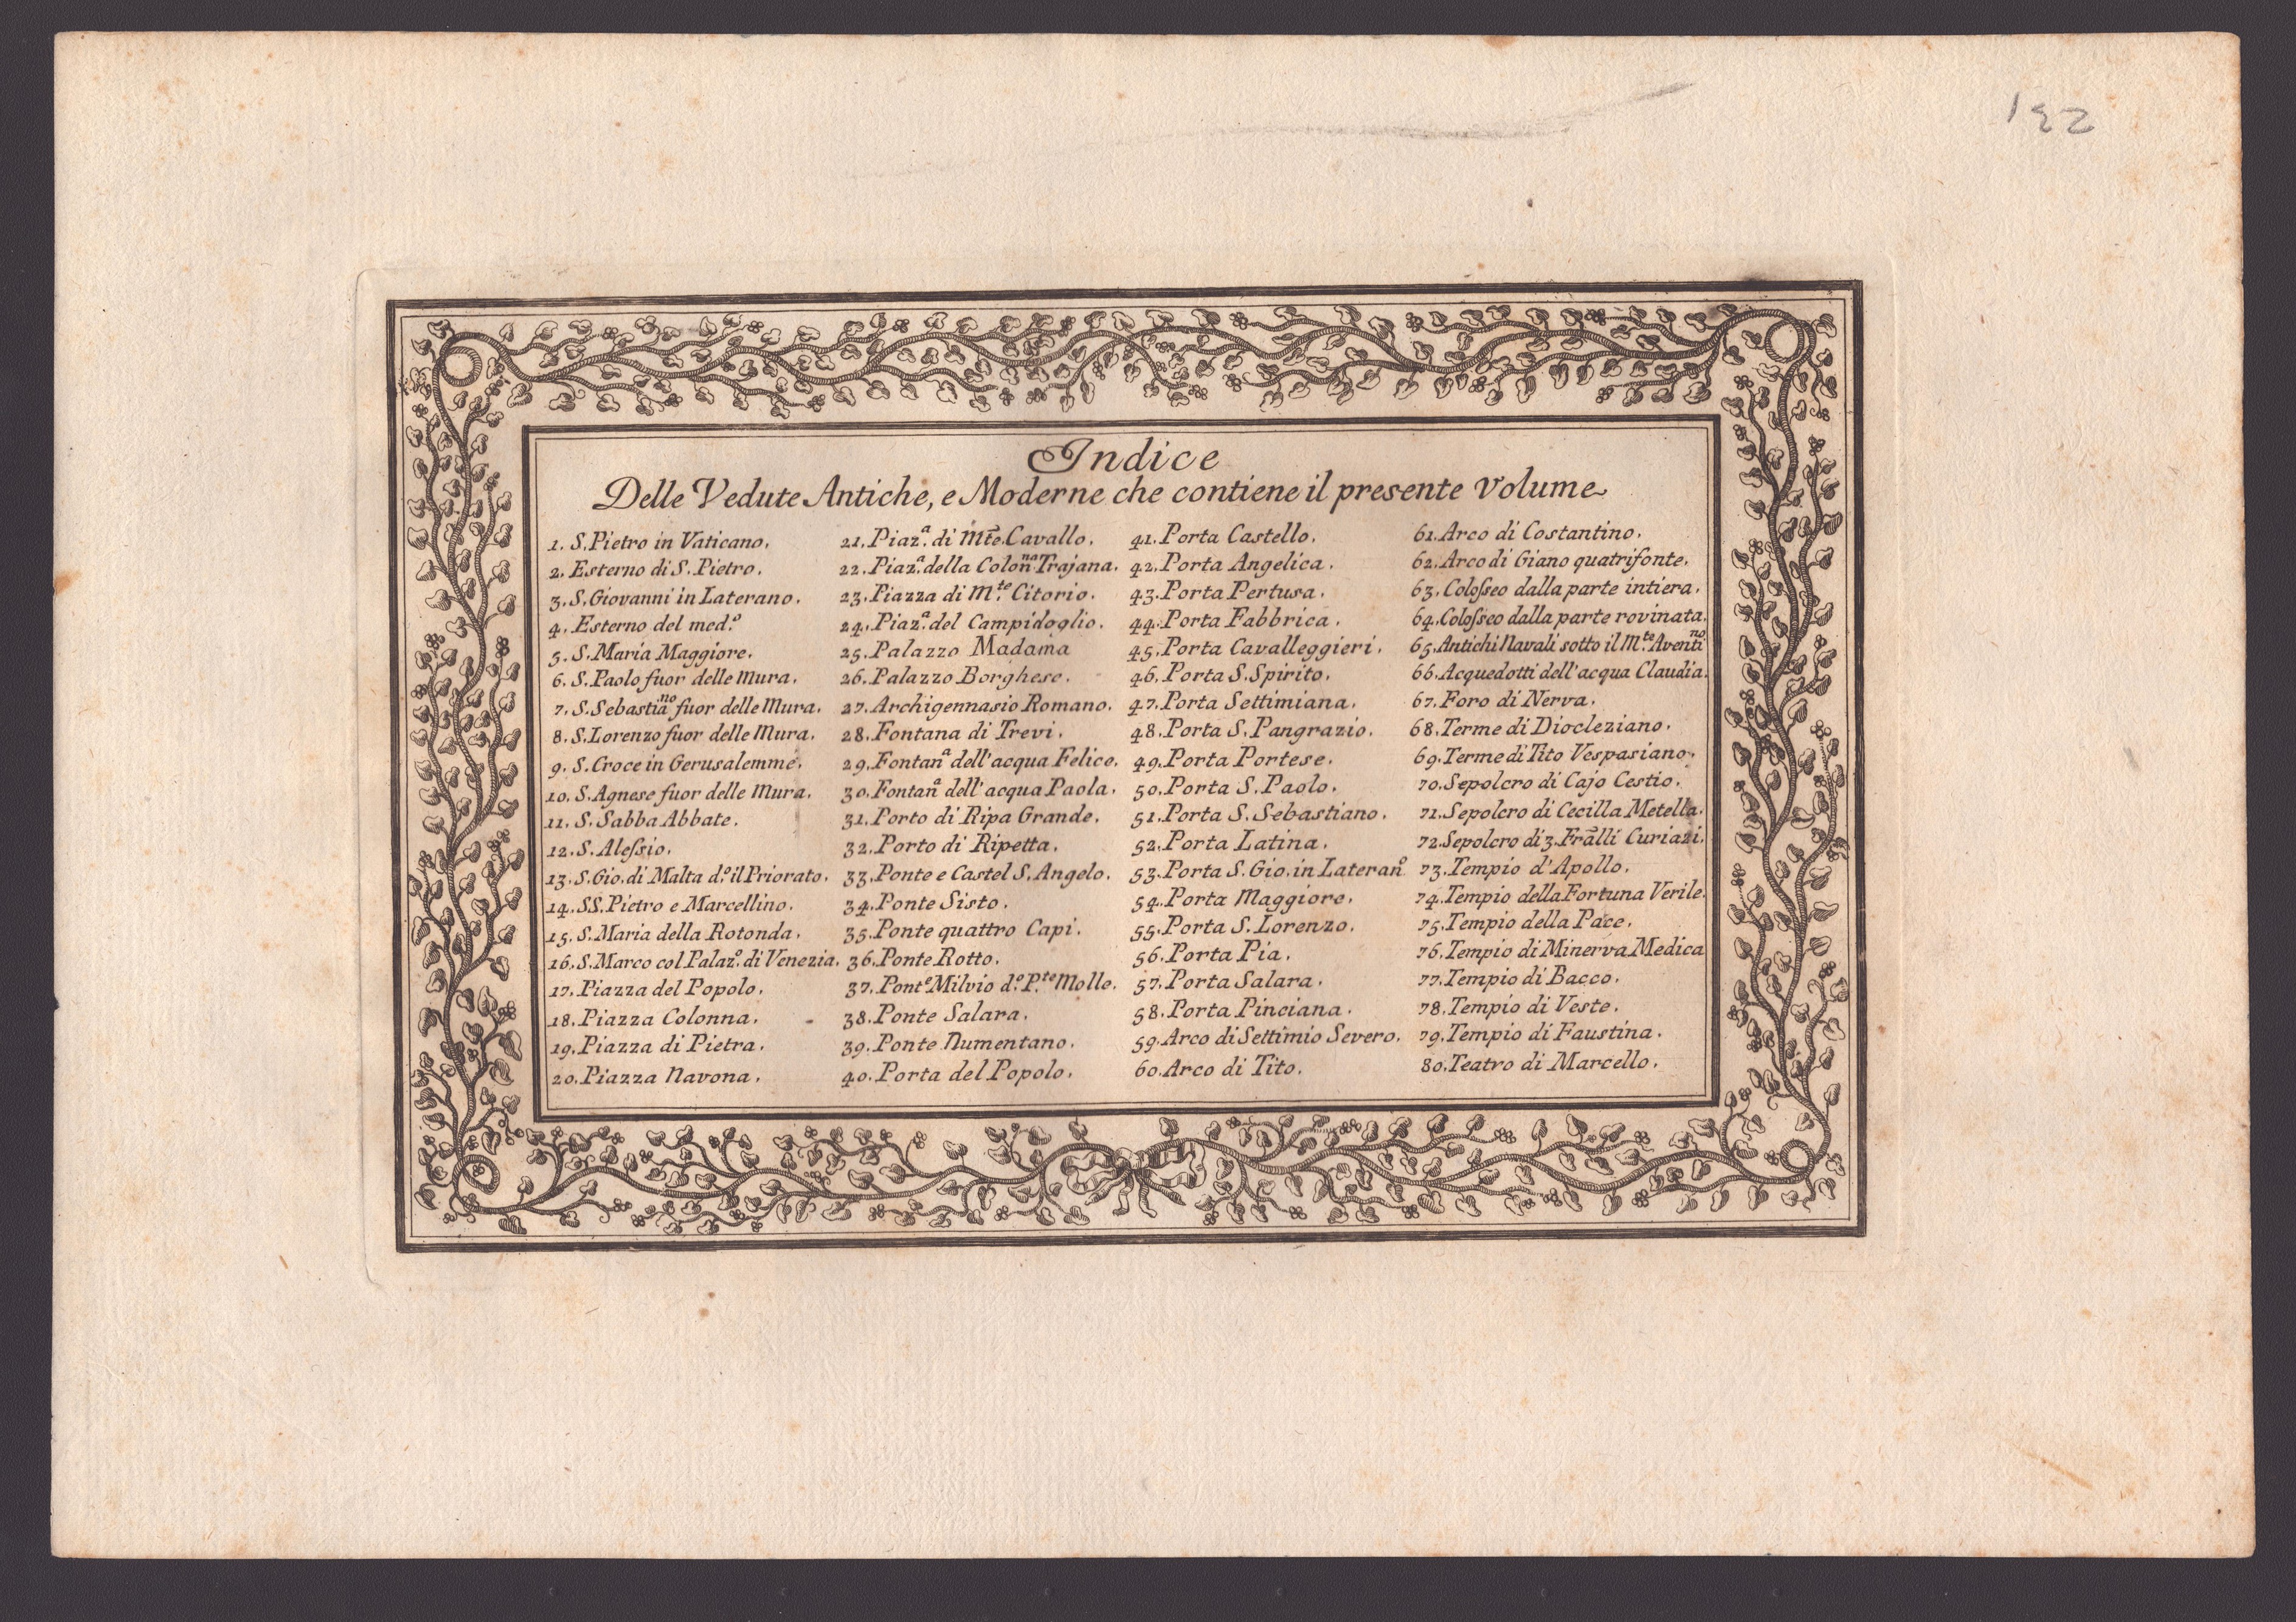 152
Indice
Delle Vedute Antiche, e Moderne che contiene il presente Volume
1. S. Pietro in Vaticano.
2. Esterno di S. Pietro.
3. S. Giovanni in Laterano.
4. Esterno del med.º
5. S. Maria Maggiore.
6. S. Paolo fuor delle Mura.
7. S. Sebastiaⁿº fuor delle Mura.
8. S. Lorenzo fuor delle Mura.
9. S. Croce in Gerusalemme.
10. S. Agnese fuor delle Mura.
11. S. Sabba Abbate.
12. S. Aleſsio.
13. S. Gio. di Malta d.º il Priorato.
14. SS. Pietro e Marcellino.
15. S. Maria della Rotonda.
16. S. Marco col Palaz.º di Venezia.
17. Piazza del Popolo.
18. Piazza Colonna.
19. Piazza di Pietra.
20. Piazza Navona.
21. Piaz.ª di Mte. Cavallo.
22. Piaz.ª della Colonⁿª Trajana.
23. Piazza di M.te Citorio.
24. Piaz.ª del Campidoglio.
25. Palazzo Madama
26. Palazzo Borghese.
27. Archigennasio Romano.
28. Fontana di Trevi.
29. Fontanª dell'acqua Felice.
30. Fontanª dell'acqua Paola.
31. Porto di Ripa Grande.
32. Porto di Ripetta.
33. Ponte e Castel S. Angelo.
34. Ponte Sisto.
35. Ponte quattro Capi.
36. Ponte Rotto.
37. Pont.e Milvio d.º P.te Molle.
38. Ponte Salara.
39. Ponte Numentano.
40. Porta del Popolo.
41. Porta Castello.
42. Porta Angelica.
43. Porta Pertusa.
44. Porta Fabbrica.
45. Porta Cavalleggieri.
46. Porta S. Spirito.
47. Porta Settimiana.
48. Porta S. Pangrazio.
49. Porta Portese.
50. Porta S. Paolo.
51. Porta S. Sebastiano.
52. Porta Latina.
53. Porta S. Gio. in Lateranº
54. Porta Maggiore.
55. Porta S. Lorenzo.
56. Porta Pia.
57. Porta Salara.
58. Porta Pinciana.
59. Arco di Settimio Severo.
60. Arco di Tito.
61. Arco di Costantino.
62. Arco di Giano quatrifonte.
63. Coloſseo dalla parte intiera.
64. Coloſseo dalla parte rovinata.
65. Antichi Navali sotto il M.te Aventiⁿº
66. Acquedotti dell'acqua Claudia.
67. Foro di Nerva.
68. Terme di Diocleziano.
69. Terme di Tito Vespasiano.
70. Sepolcro di Cajo Cestio.
71. Sepolcro di Cecilla Metella.
72. Sepolcro di 3. Fralli Curiazi.
73. Tempio d'Apollo.
74. Tempio della Fortuna Verile.
75. Tempio della Pace.
76. Tempio di Minerva Medica
77. Tempio di Bacco.
78. Tempio di Veste.
79. Tempio di Faustina.
80. Teatro di Marcello.